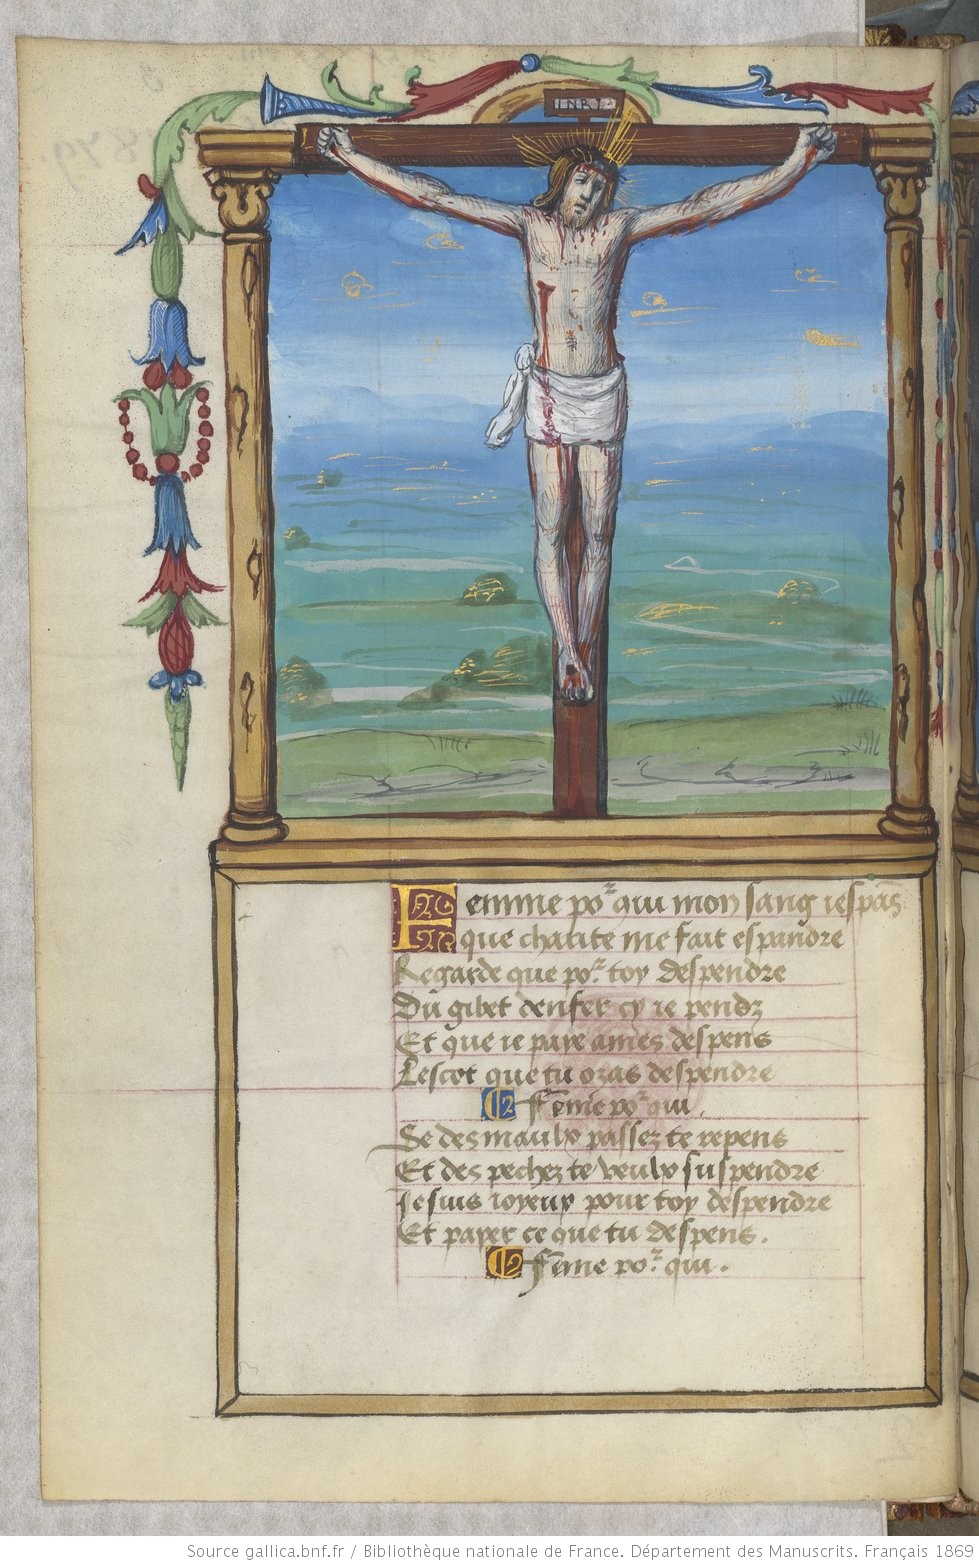 INRI
Femme po.r qui mon sang iespãs
que charite me fait espandre
Regarde que po.r toy despendre
Du gibet denfer cy ie pendz
Et que ie paye a mes despens
Lescot que tu oras despendre
Fẽme po.r qui.
Se des maulx passez te repens
Et des pechez te veulx suspendre
Ie suis ioyeux pour toy despendre
Et payer ce que tu despens.
Fẽme po.r qui.
Source gallica.bnf.fr / Bibliothèque nationale de France. Département des Manuscrits. Français 1869